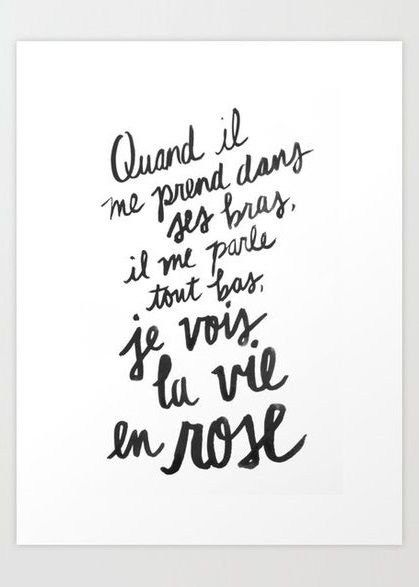 Quand il
me prend dans
ses bras,
il me parle
tout bas,
je vois
la vie
en rose